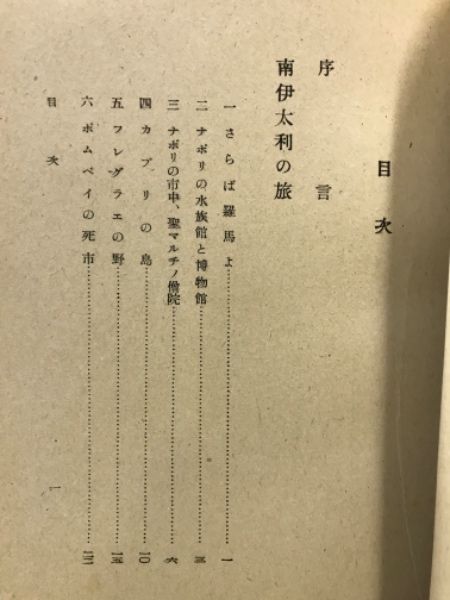 目次
序言
南伊太利の旅
一 さらば羅馬よ……一
二 ナポリの水族館と博物館……三
三 ナポリの市中、聖マルチノ僧院……六
四 カプリの島……一〇
五 フレグラエの野……一五
六 ポムペイの死市……二三
目次 一